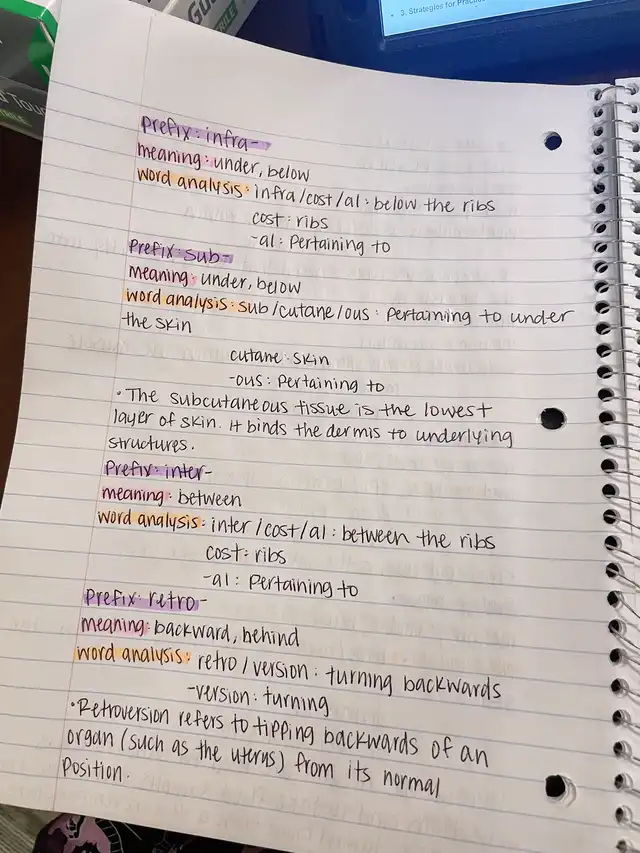 3. Strategies for
Prefix: infra-
meaning: under, below
word analysis: infra/cost/al: below the ribs
cost: ribs
-al: Pertaining to
Prefix: sub-
meaning: under, below
word analysis: sub/cutane/ous: Pertaining to under
the skin
cutane: skin
-ous: Pertaining to
• The subcutaneous tissue is the lowest
layer of skin. It binds the dermis to underlying
structures.
Prefix: inter-
meaning: between
word analysis: inter/cost/al: between the ribs
cost: ribs
-al: Pertaining to
Prefix: retro-
meaning: backward, behind
word analysis: retro/version: turning backwards
-version: turning
• Retroversion refers to tipping backwards of an
organ (such as the uterus) from its normal
Position.